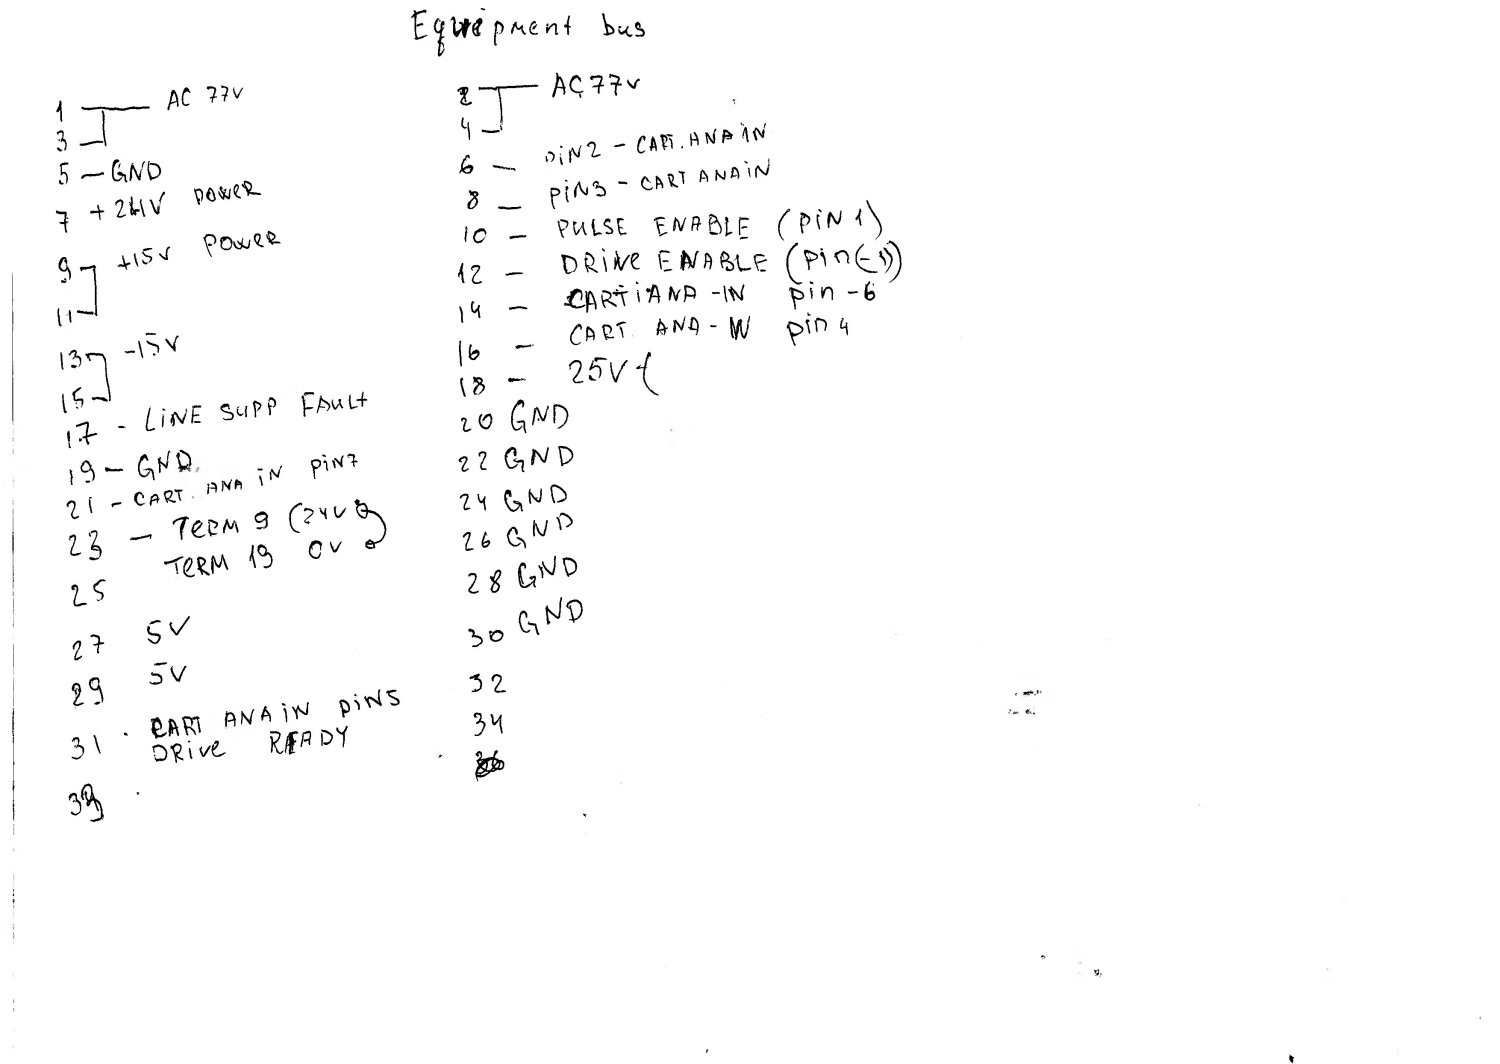 Equipment bus
1 AC 77V
3
5 - GND
7 + 24V POWER
9 +15V POWER
11
13 -15V
15
17 - LINE SUPP FAULT
19 - GND
21 - CART. ANA IN PIN7
23 - TERM 9 (24V
TERM 19 0V
25
27 5V
29 5V
31 CART ANA IN PIN5
DRIVE READY
33
2 AC 77V
4
6 - PIN2 - CART. ANA IN
8 - PIN3 - CART ANA IN
10 - PULSE ENABLE (PIN 1)
12 - DRIVE ENABLE (PIN(-1))
14 - CART ANA -IN pin -6
16 - CART. ANA - IN pin 4
18 - 25V
20 GND
22 GND
24 GND
26 GND
28 GND
30 GND
32
34